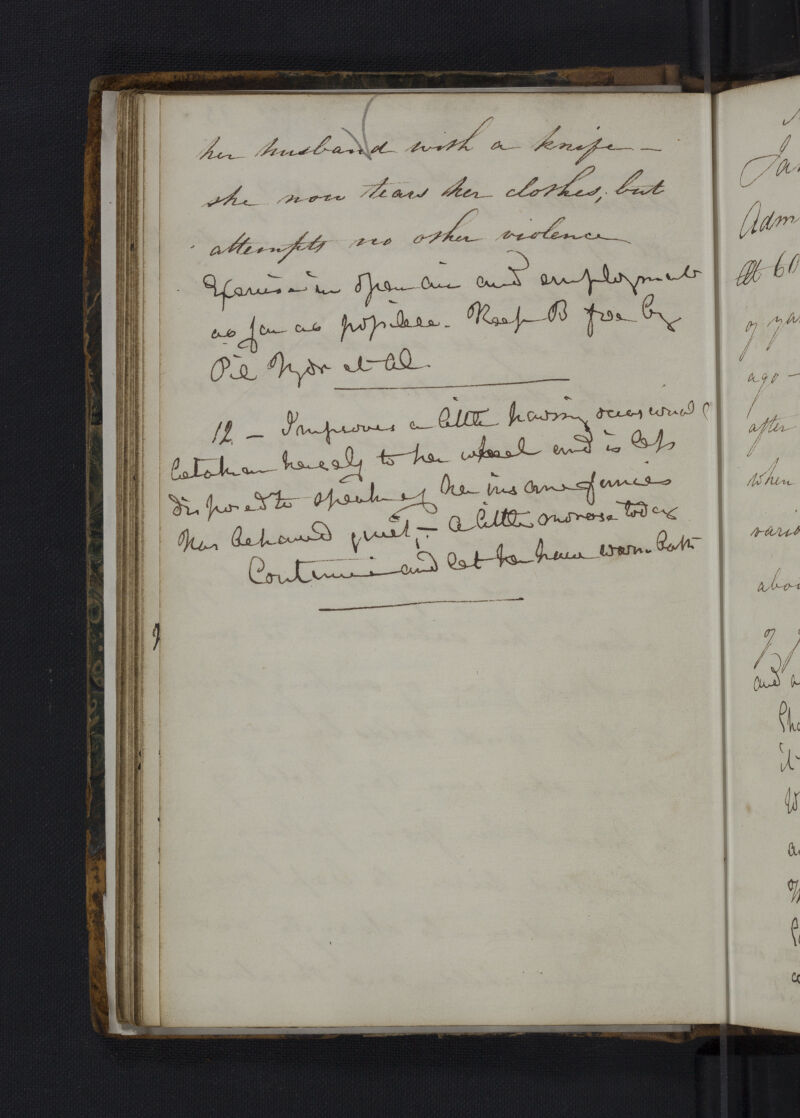 her husband with a knife –
she now tears her clothes, but
attempts no other violence
Exercise in open air and employment
as far as possible. Keep B free by
Pil Hydr et Al.
12 – Improves a little having occasional
betaken herself to her wheel and is less
disposed to speak of her insane fancies
Has behaved quiet, – A little morose today
Continue and let her have warm bath
Adm
Æt 60
of
ago –
after
when
of
and